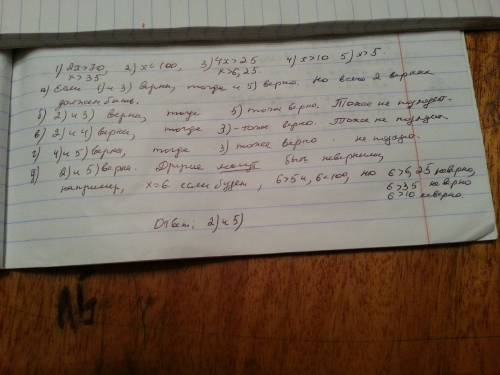 1) 2x>70, 2) x<100, 3) 4x>25 4) x>10 5) x>5.
x>35 x>6,25.
а) Если 1) и 3) верна, тогда и 5) верно. Но всего 2 верных
должен быть.
б) 2) и 3) верна, тогда 5) тоже верно. Тоже не подходит.
в) 2) и 4) верна, тогда 3) - тоже верно. Тоже не
г) 4) и 5) верна, тогда 3) тоже верно. не
д) 2) и 5) верна. Другие могут быть неверными,
например, x=6 если будет, 6>5 и, 6<100, но 6>6,25 неверно,
6>35 неверно
6>10 неверно.
Ответ: 2) и 5)